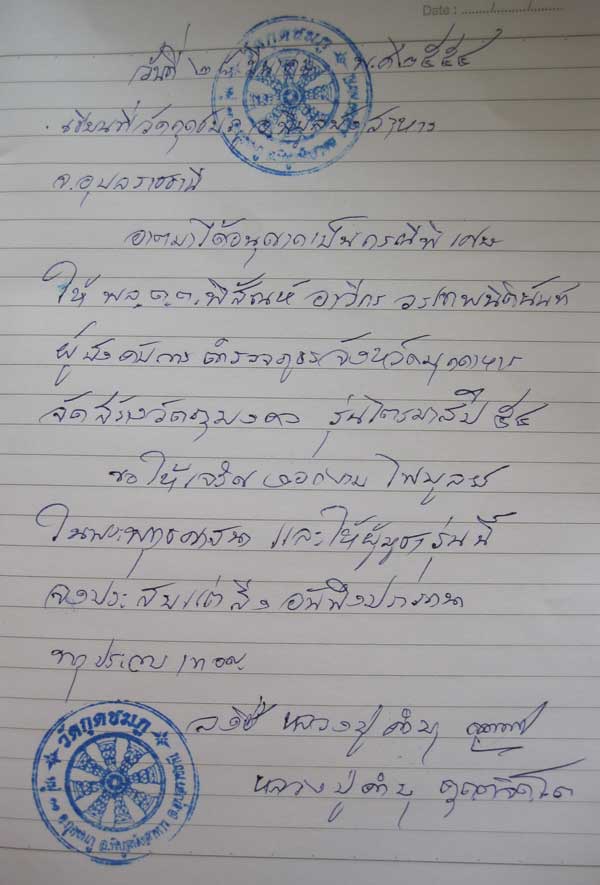 Date : ......../......../........
วันที่ ๒๘ มีนาคม พ.ศ ๒๕๕๔
เขียนที่วัดกุดชมภู อ.พิบูลมังสาหาร
จ.อุบลราชธานี
อาตมาได้อนุญาตเป็นกรณีพิเศษ
ให้ พล.ต.ต.พิสัณห์ อาวีกร วรเทพนิตินันท์
ผู้บังคับการตำรวจภูธรจังหวัดมุกดาหาร
จัดสร้างวัตถุมงคล รุ่นไตรมาสปี ๕๔
ขอให้เจริญงอกงาม ไพบูลย์
ในพระพุทธศาสนา และให้ผู้บูชารุ่นนี้
จงประสบแต่สิ่งอันพึงปรารถนา
ทุกประการ เทอญ
ลงชื่อ หลวงปู่คำบุ
หลวงปู่คำบุ คุตตจิตโต
วัดกุดชมภู
วัดกุดชมภู